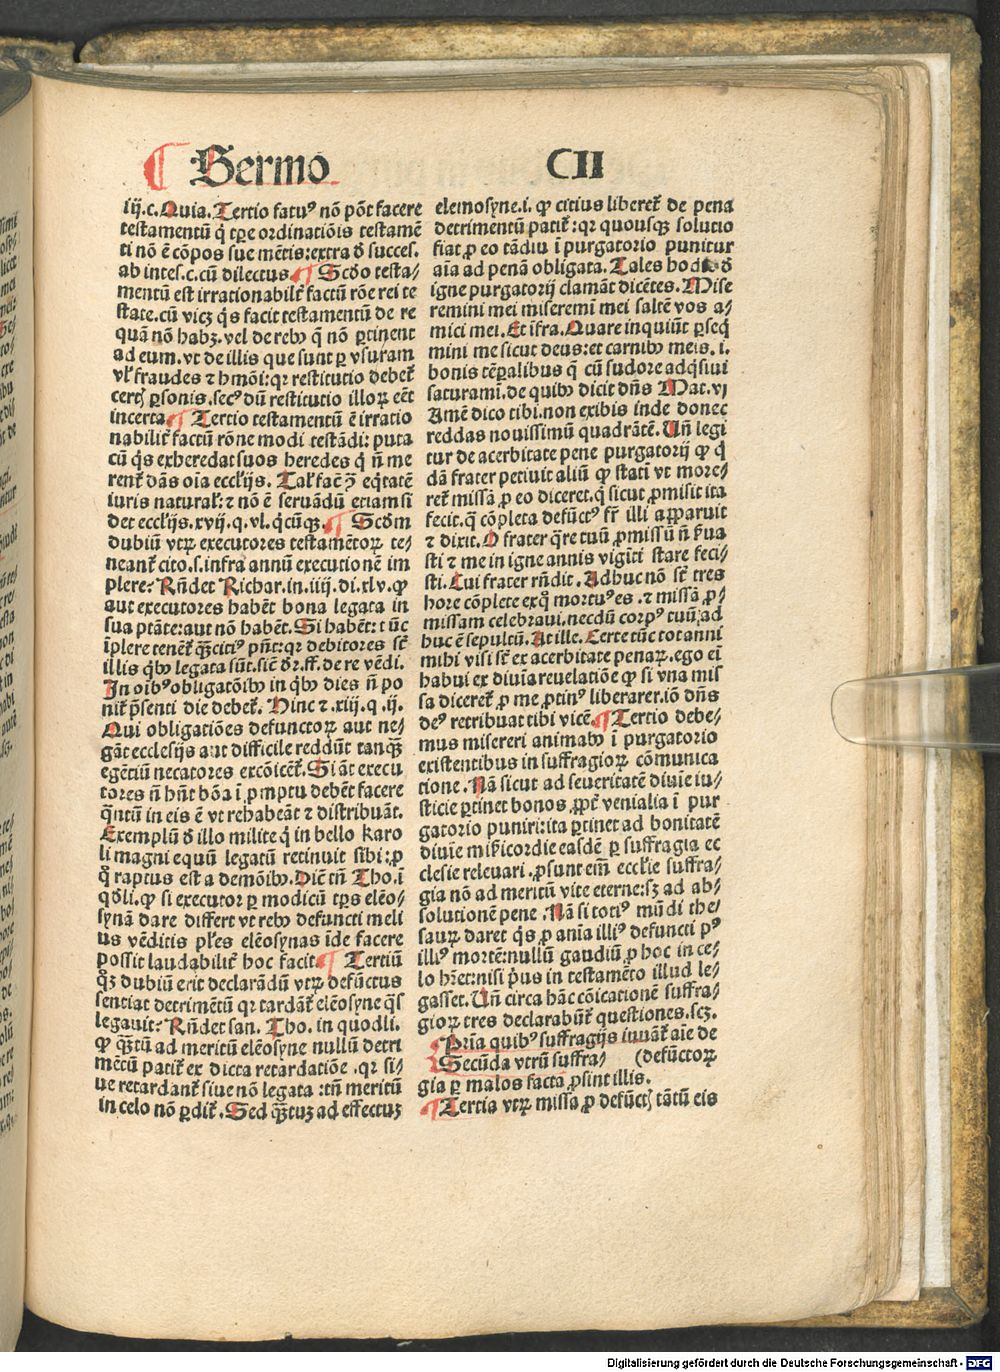 Sermo CII
iij.c. Quia. Tertio fatuꝰ nõ põt facere
testamentũ q̇ tp̃e ordinatiõis testamē
ti nõ ē cõpos sue mẽtis:extra ꝺ succes.
ab intes.c.cũ dilectus. ¶ Scꝺo testa/
mentũ est irrationabilr̃ factũ rõe rei te
state.cũ vicꝫ q̇s facit testamentũ de re
quã nõ habꝫ.vel de rebꝰ q̃ nõ ꝑtinent
ad eum.vt de illis que sunt ꝑ vsuram
vl̓ fraudes ⁊ hmõi:qr restitutio debet̃
certꝭ ꝑsonis.secꝰ dũ restitutio illoꝝ eẽt
incerta. ¶ Tertio testamentũ ē irratio
nabilit̃ factũ rõne modi testãdi: puta
cũ q̇s exheredat suos heredes q̇ ñ me
rent̃ dãs oĩa eccl̓ijs. Tal̓ fac̃ ꝯ̃ eq̇tatẽ
iuris natural̓:⁊ nõ ē seruãdũ etiamsi
det eccl̓ijs.xvij.q.vl̓.q̇cũqꝫ. ¶ Scꝺm
dubiũ vtꝝ executores testamẽtoꝝ te/
neant̃ cito.s.infra annũ executionẽ im
plere? Rñdet Richar.in.iiij.di.xlv. ꝙ
aut executores habẽt bona legata in
sua ptãte:aut nõ habẽt. Si habẽt: tũc
ĩplere tenẽt̃ q̃ꝫcitiꝰ pñt:qr debitores st̃
illis q̇bꝰ legata sũt.sic̃ ꝺr.ff.de re vẽdi.
In oĩbꝰ obligatõibꝰ in q̇bꝰ dies ñ po
nit̃ p̃senti die debet̃. Hinc ⁊.xiij.q.ij.
Qui obligatiões defunctoꝝ aut ne/
gãt ecclesijs aut difficile reddũt tanq̃ꝫ
egẽtiũ necatores excõicẽt̃. Si ãt execu
tores ñ hñt bõa ĩ ꝓmptu debẽt facere
q̃ntũ in eis ē vt rehabeãt ⁊ distribuãt.
Exemplũ ꝺ illo milite q̇ in bello karo
li magni equũ legatũ retinuit sibi: ꝓ
q̊ raptus est a demõibꝰ. Dic̃ tñ Tho.ĩ
qꝺli. ꝙ si executor ꝑ modicũ tp̃s elẽo/
synã dare differt vt rebꝰ defuncti meli
us vẽditis pl̓es elẽosynas ĩde facere
possit laudabilit̃ hoc facit. ¶ Tertiũ
q̊ꝫ dubiũ erit declarãdũ vtꝝ defũctus
sentiat detrimẽtũ qr tardãt̃ elẽosyne q̃s
legauit? Rñdet san. Tho. in quodli.
ꝙ q̃ꝫtũ ad meritũ elẽosyne nullũ detri
mẽtũ patit̃ ex dicta retardatiõe .qr si/
ue retardant̃ siue nõ legata :tñ meritũ
in celo nõ ꝑdit̃. Sed q̃ꝫtuꝫ ad effectuꝫ
elemosyne.i. ꝙ citius liberet̃ de pena
detrimentũ patit̃:qr quousqꝫ solutio
fiat ꝓ eo tãdiu ĩ purgatorio punitur
aĩa ad penã obligata. Tales ꝺ
igne purgatorij clamãt dicẽtes. Mise
remini mei miseremĩ mei saltẽ vos a/
mici mei. Et ĩfra. Quare inquiũt ꝑseq̇
mini me sicut deus:et carnibꝰ meis .i.
bonis tẽꝑalibus q̃ cũ sudore adq̇siui
saturamĩ.de quibꝰ dicit dñs Mat.vj
Amẽ dico tibi.non exibis inde donec
reddas nouissimũ quadrãtẽ. Uñ legi
tur de acerbitate pene purgatorij ꝙ q̇
dã frater petiuit aliũ ꝙ statĩ vt more/
ret̃ missã ꝓ eo diceret.q̇ sicut ꝓmisit ita
fecit.q̃ cõpleta defũctꝰ fr̃ illi apparuit
⁊ dixit. O frater q̃re tuũ ꝓmissũ ñ ẜua
sti ⁊ me in igne annis vigĩti stare feci/
sti. Cui frater rñdit. Adhuc nõ st̃ tres
hore cõplete exq̊ mortuꝰ es .⁊ missã ꝓ/
missam celebraui.necdũ corpꝰ tuũ ad
huc ē sepultũ. At ille. Certe tũc tot anni
mihi visi st̃ ex acerbitate penaꝝ.ego eĩ
habui ex diuĩa reuelatiõe ꝙ si vna mis
sa diceret̃ ꝓ me ꝓtinꝰ liberarer.iõ dñs
deꝰ retribuat tibi vicẽ. ¶ Tertio debe/
mus misereri animabꝰ ĩ purgatorio
existentibus in suffragioꝝ cõmunica
tione .Nã sicut ad seueritatẽ diuĩe iu/
sticie ꝑtinet bonos ꝓpt̃ venialia ĩ pur
gatorio puniri:ita ꝑtinet ad bonitatẽ
diuĩe mĩẜicordie easdẽ ꝑ suffragia ec
clesie releuari .ꝓsunt em̃ eccl̓ie suffra/
gia nõ ad meritũ vite eterne:sꝫ ad ab/
solutionẽ pene .Nã si totiꝰ mũdi the/
sauꝝ daret q̇s ꝓ anĩa illiꝰ defuncti pꝰ
illiꝰ mortẽ:nullũ gaudiũ ꝓ hoc in ce/
lo hr̃et:nisi p̓us in testamẽto illud le/
gasset. Uñ circa hãc cõicationẽ suffra/
gioꝝ tres declarabũt̃ questiones.scꝫ.
Prĩa quibꝰ suffragijs iuuãt̃ aĩe de
Secũda vtrũ suffra/ (defũctoꝝ
gia ꝑ malos facta ꝓsint illis.
¶ Tertia vtꝝ missa ꝓ defũctꝭ tãtũ eis
Digitalisierung gefördert durch die Deutsche Forschungsgemeinschaft - DFG